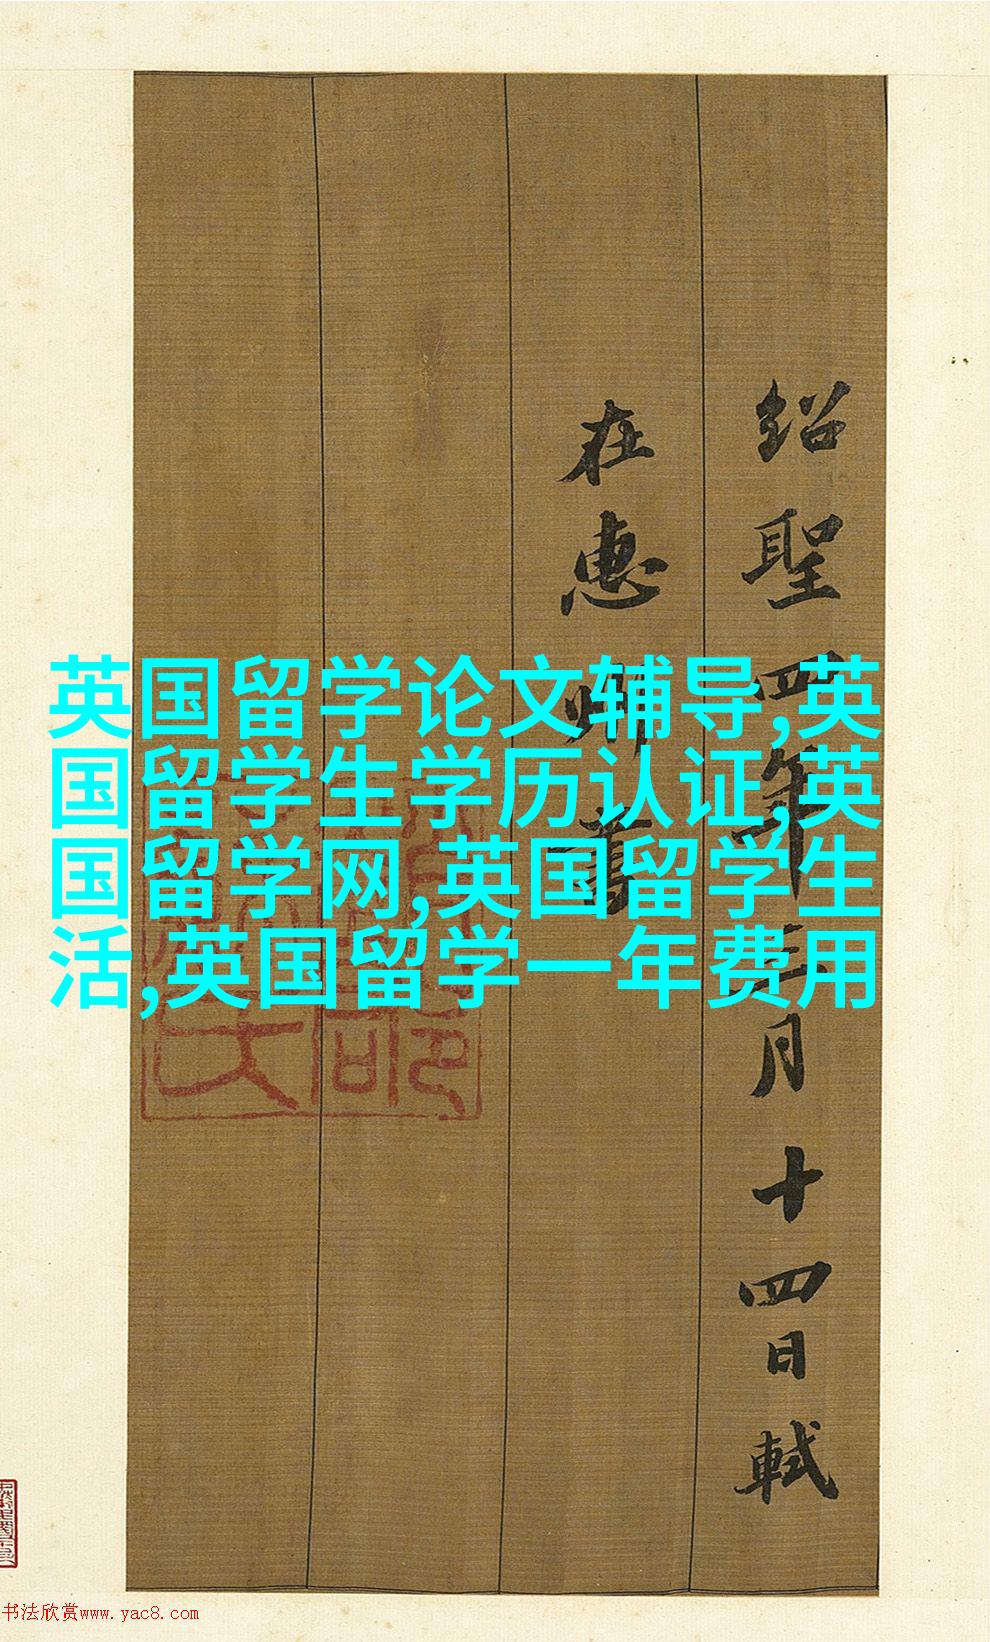 绍聖四年三月十四日軾
在惠州書
英国留学论文辅导,英
国留学生学历认证,英
国留学网,英国留学生
活,英国留学一年费用
书法欣赏www.yac8.com